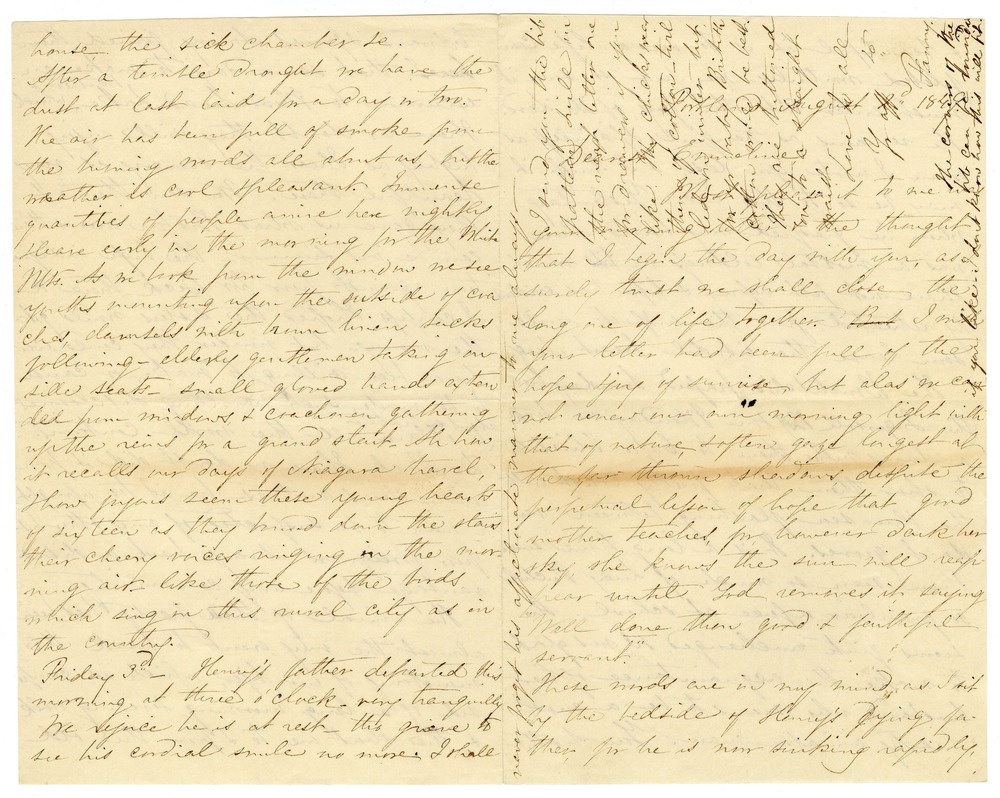 house the sick chamber &c.
After a terrible drought we have the
dust at last laid for a day or two.
The air has been full of smoke from
the burning woods all about us, but the
weather is cool & pleasant. Immense
quantities of people arrive here nightly
& leave early in the morning for the White
Mts. As we look from the window we see
youths mounting upon the outside of coa
ches, damsels with brown linen sacks
following – elderly gentlemen taking in
side seats – small gloved hands exten
ded from windows & coachmen gathering
up the reins for a grand start. Ah how
it recalls our days of Niagara travel,
& how joyous seem these young hearts
of sixteen as they bound down the stairs
their cheery voices ringing in the mor
ning air like those of the birds
which sing in this rural city as in
the country.
Friday 3d – Henry's father departed this
morning at three o'clock – very tranquilly
We rejoice he is at rest – tho' grieve to
see his cordial smile no more. I shall
never forget his affectionate manner to me always
Portland August 2nd 18
Dearest Emmeline,
pleasant to me in
your morning date is the thought
that I begin the day with you, as I
surely trust we shall close the
long one of life together. But I wish
your letter had been full of the
hope & joy of sunrise, but alas we can
not renew our own morning light with
that of nature, & often gaze longest at
the far thrown shadows despite the
perpetual lesson of hope that good
mother teaches, for however dark her
sky she knows the sun will reap
pear until God removes it saying
"Well done thou good & faithful
servant."
These words are in my mind, as I sit
by the bedside of Henry's dying fa
ther, for he is now sinking rapidly,
I send you the bib
pattern & will in
the next letter one
for drawers if you
like. My chicks wear
them of cotton
Love to all
Fanny.
The corners of the
bib can be
if you like – I don't know how this will fit.